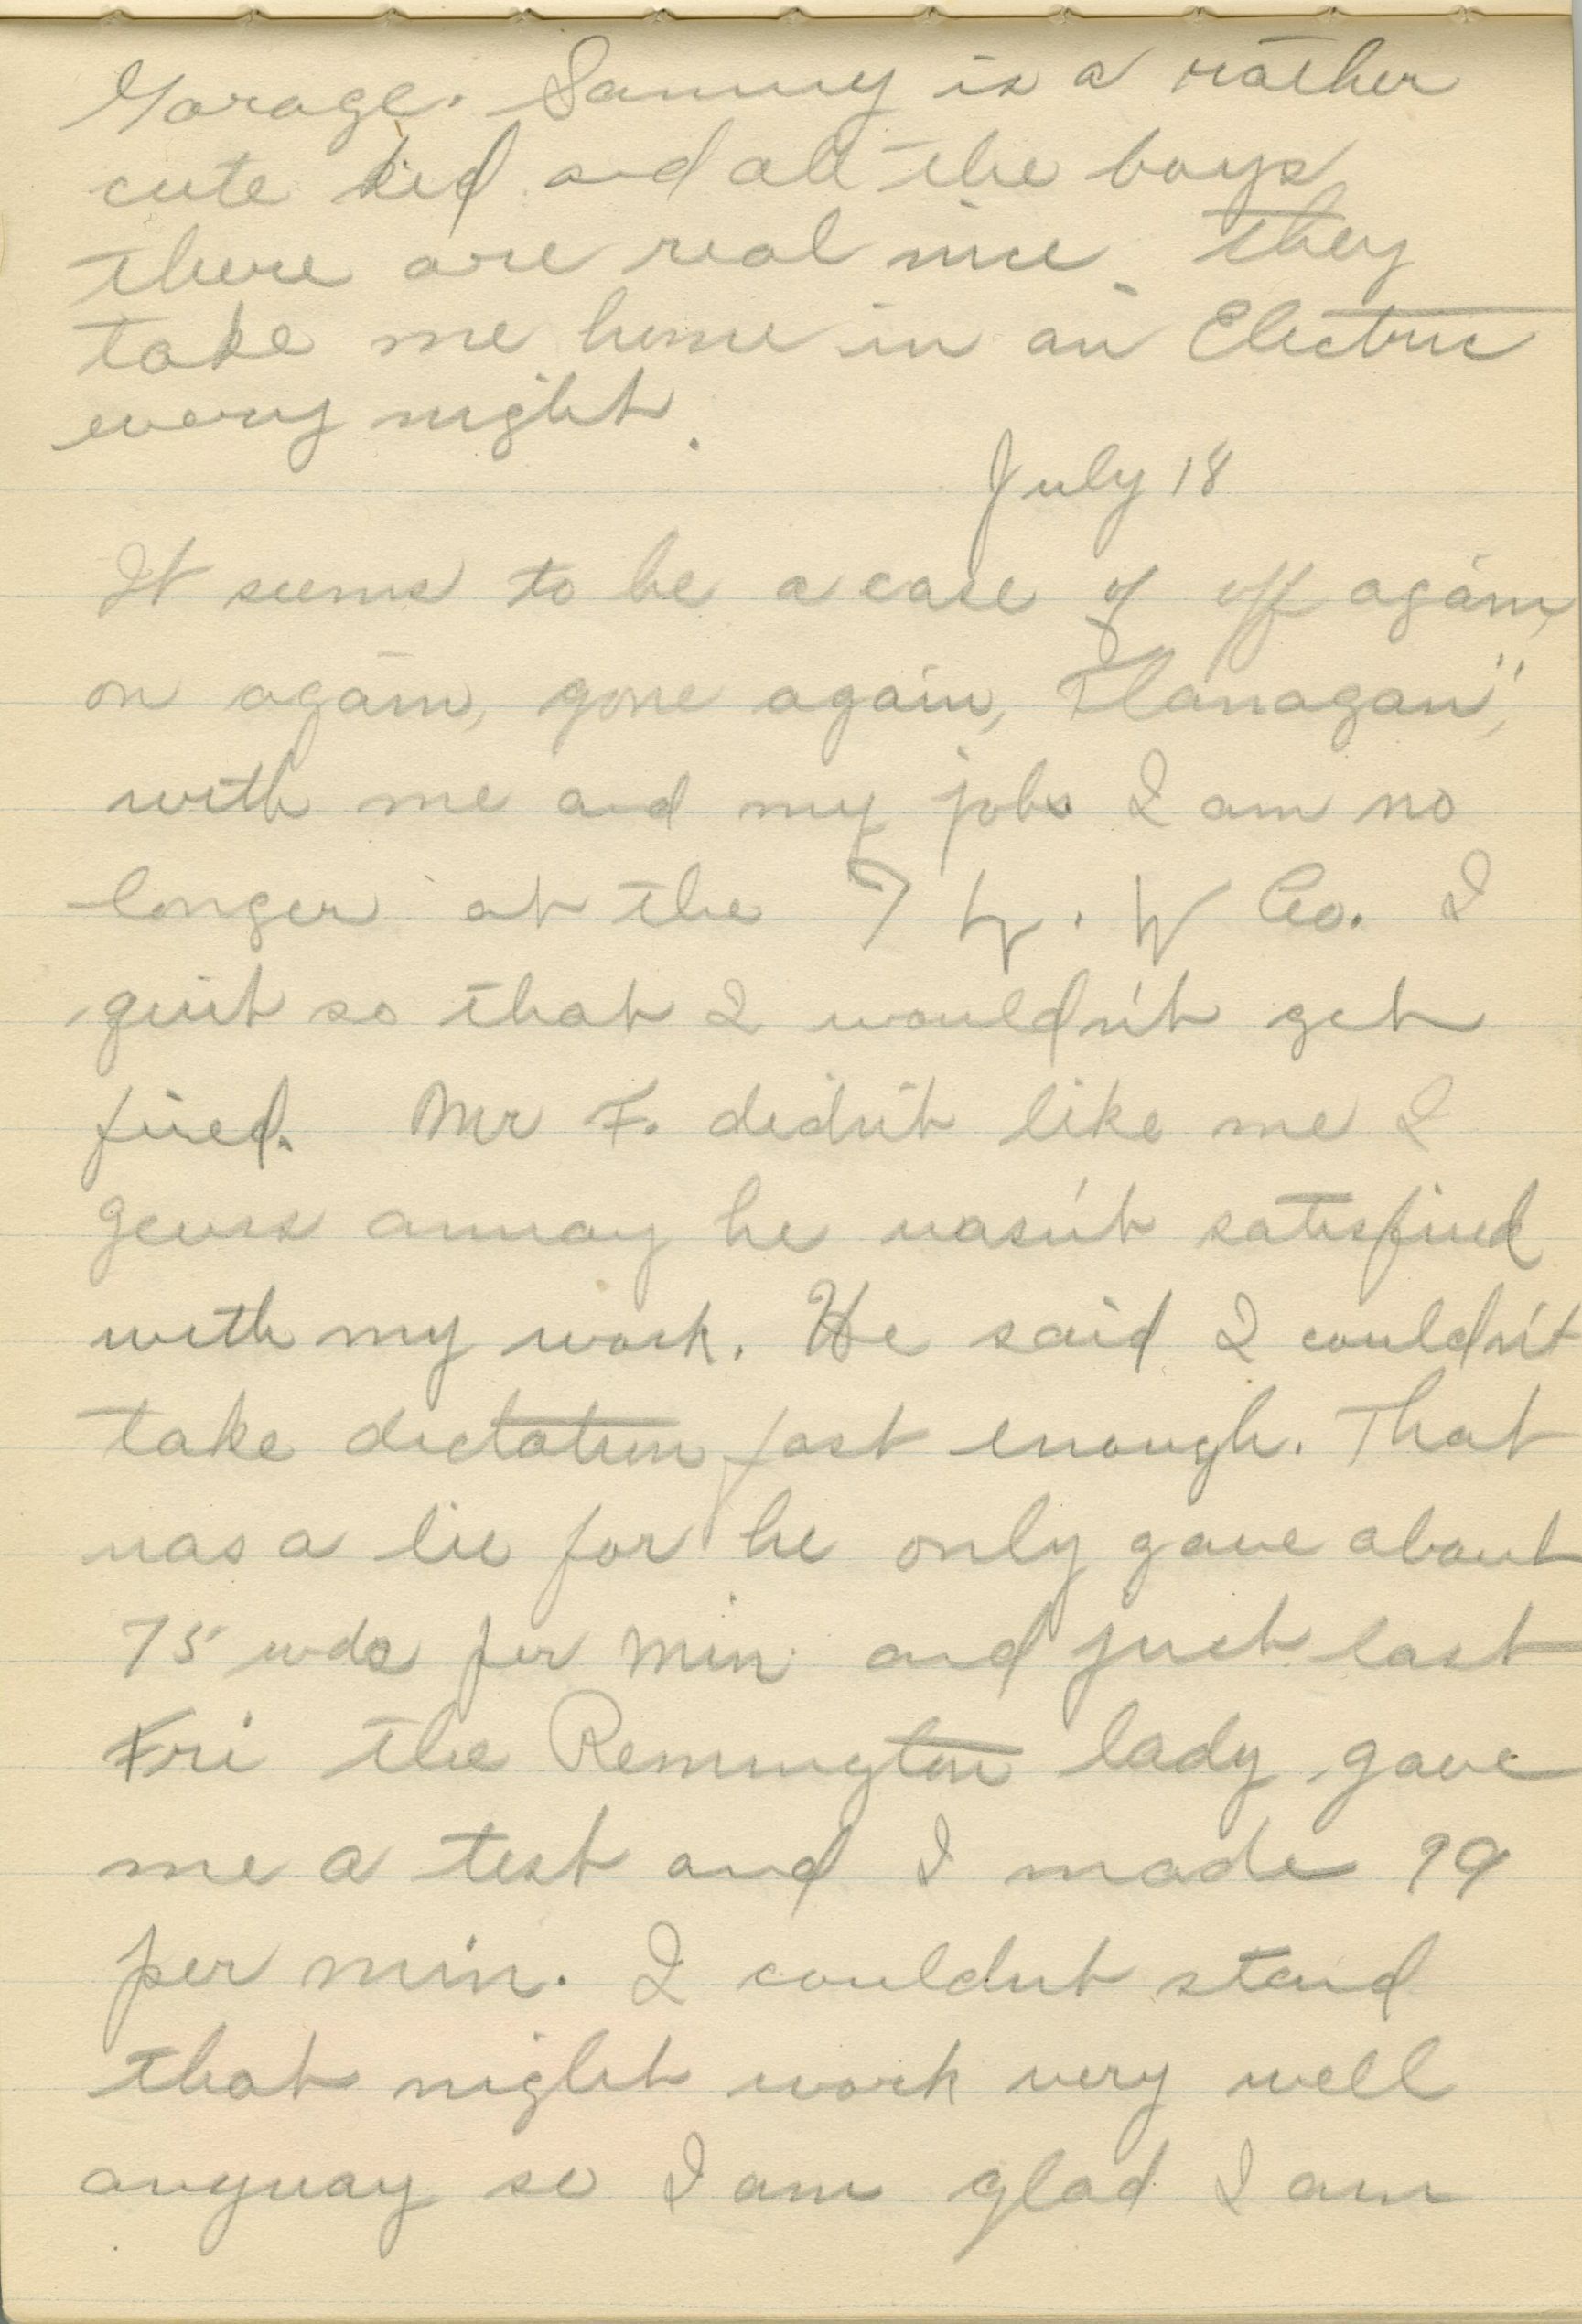 Garage. Sammy is a rather
cute kid and all the boys
there are real nice they
take me home in an Electric
every night.
July 18
It seems to be a case of off again,
on again, gone again, Flanagan",
with me and my jobs I am no
longer at the W Co. I
quit so that I wouldn't get
fired. Mr F. didn't like me I
geuss anway he wasn't satisfied
with my work. He said I couldn't
take dictation fast enough. That
was a lie for he only gave about
75 wds per min and just last
Fri the Remington lady gave
me a test and I made 99
per min. I couldnt stand
that night work very well
anyway so I am glad I am